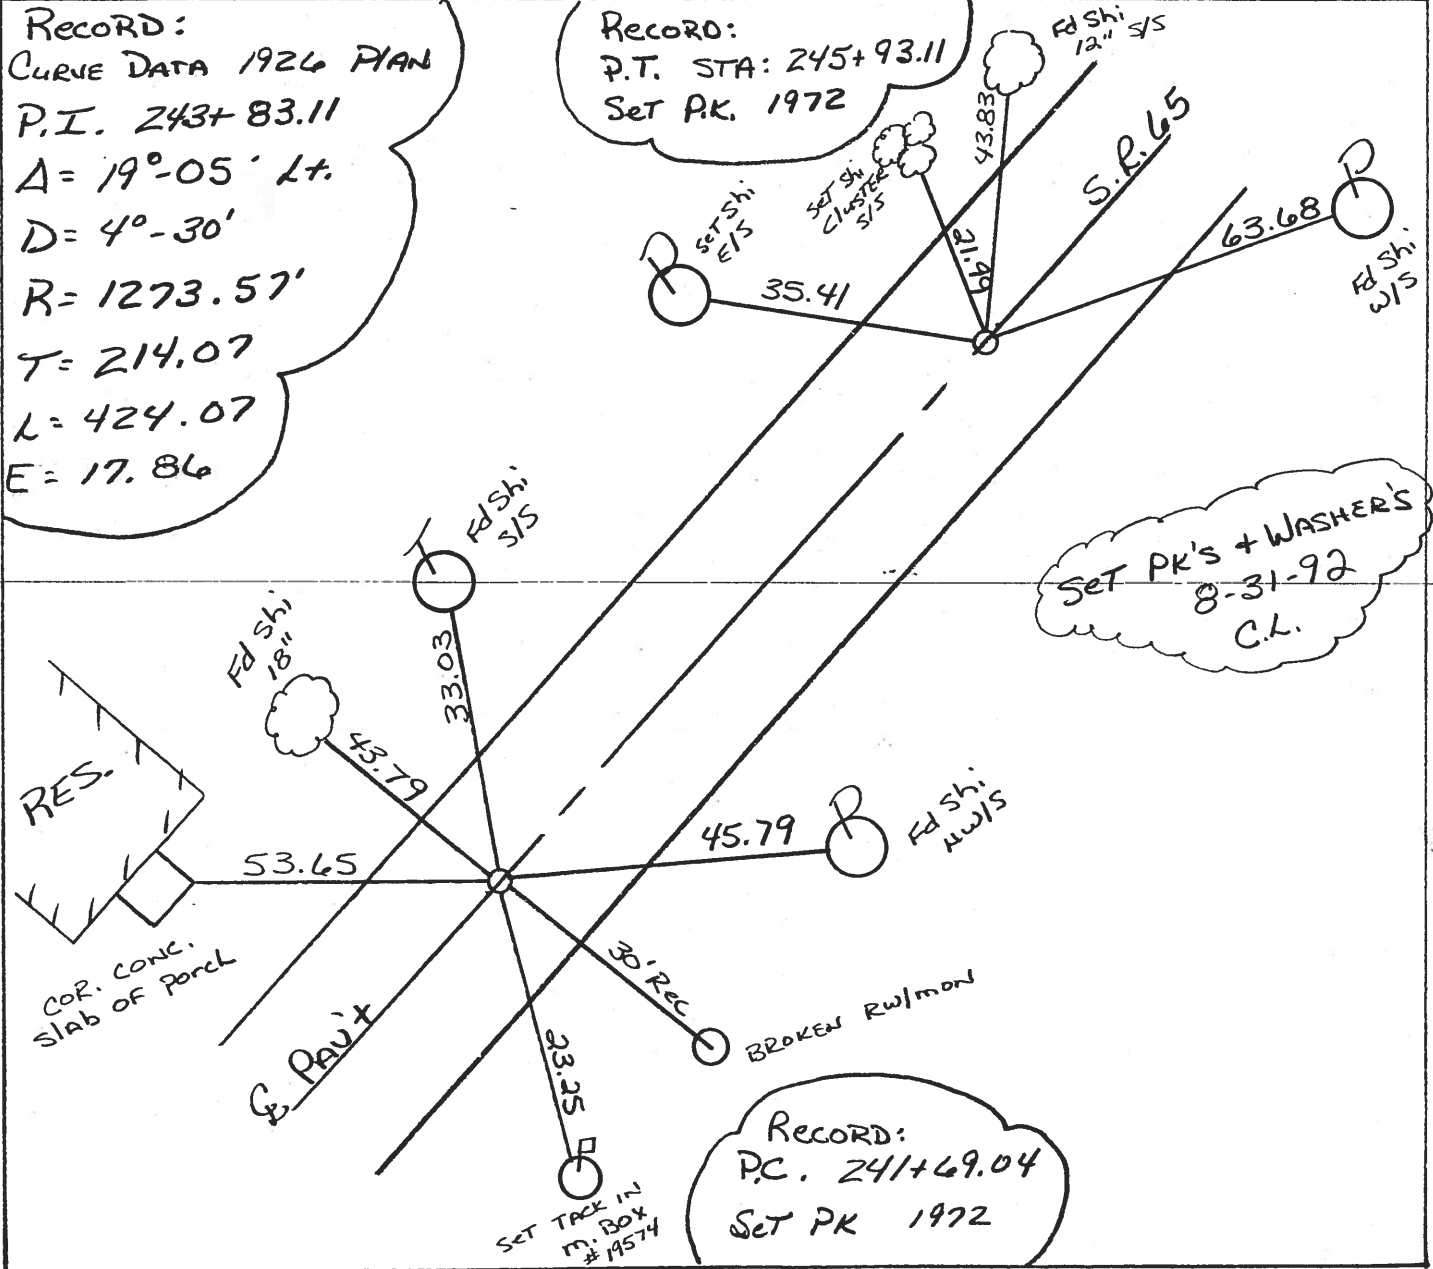 RECORD:
CURVE DATA 1926 PLAN
P.I. 243+83.11
Δ= 19°-05' Lt.
D= 4°-30'
R= 1273.57'
T= 214.07
L= 424.07
E= 17.86
RECORD:
P.T. STA: 245+93.11
SET P.K. 1972
Fd Shi
12" S/S
43.83
SET Shi
CLUSTER
S/S
21.96
S.R. 65
63.68
Fd Shi
W/S
SET Shi
E/S
35.41
SET PK'S + WASHER'S
8-31-92
C.L.
T
Fd Shi
S/S
33.03
Fd Shi
18"
43.79
RES.
53.65
COR. CONC.
Slab OF Porch
45.79
Fd Shi
NW/S
30' Rec
BROKEN RW/MON
23.25
SET TACK IN
M. BOX
#19574
℄ PAV't
RECORD:
P.C. 241+69.04
SET PK 1972